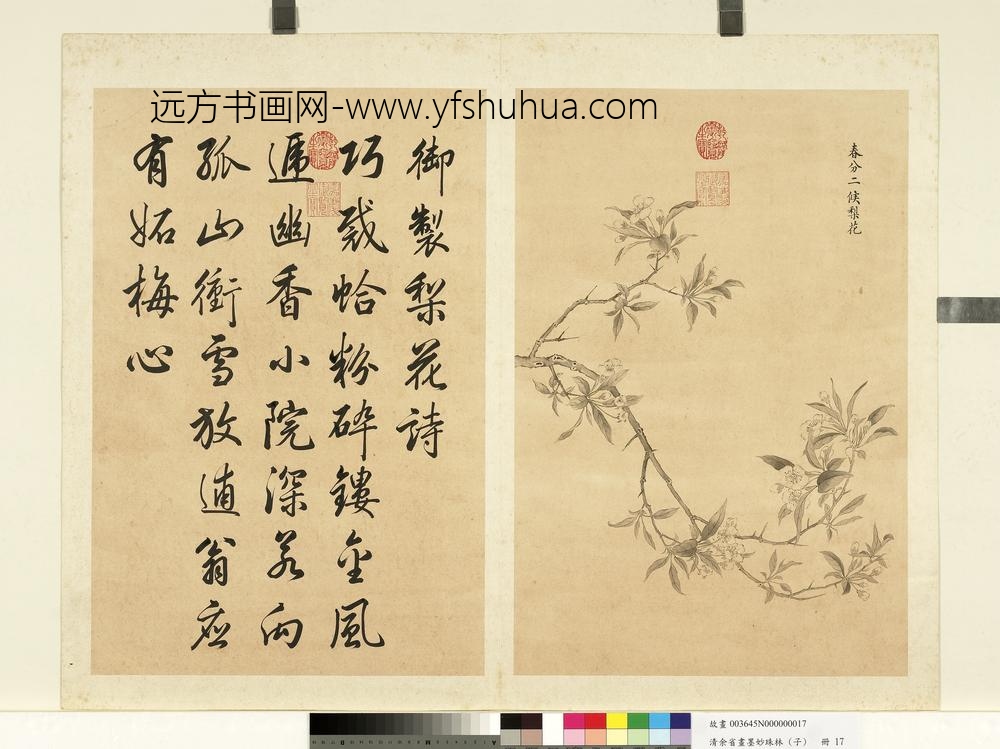 远方书画网-www.yfshuhua.com
春分二候梨花
御製梨花詩
巧蛤粉碎鏤金風
遞幽香小院深若向
孤山衝雪放逋翁應
有妬梅心
故畫 003645N000000017
清余省畫墨妙珠林（子） 冊 17